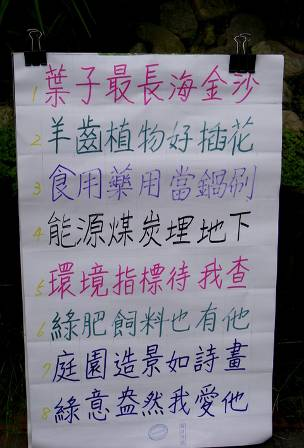 1 葉子最長海金沙
2 羊齒植物好插花
3 食用藥用當鍋刷
4 能源煤炭埋地下
5 環境指標待我查
6 綠肥飼料也有他
7 庭園造景如詩畫
8 綠意盎然我愛他